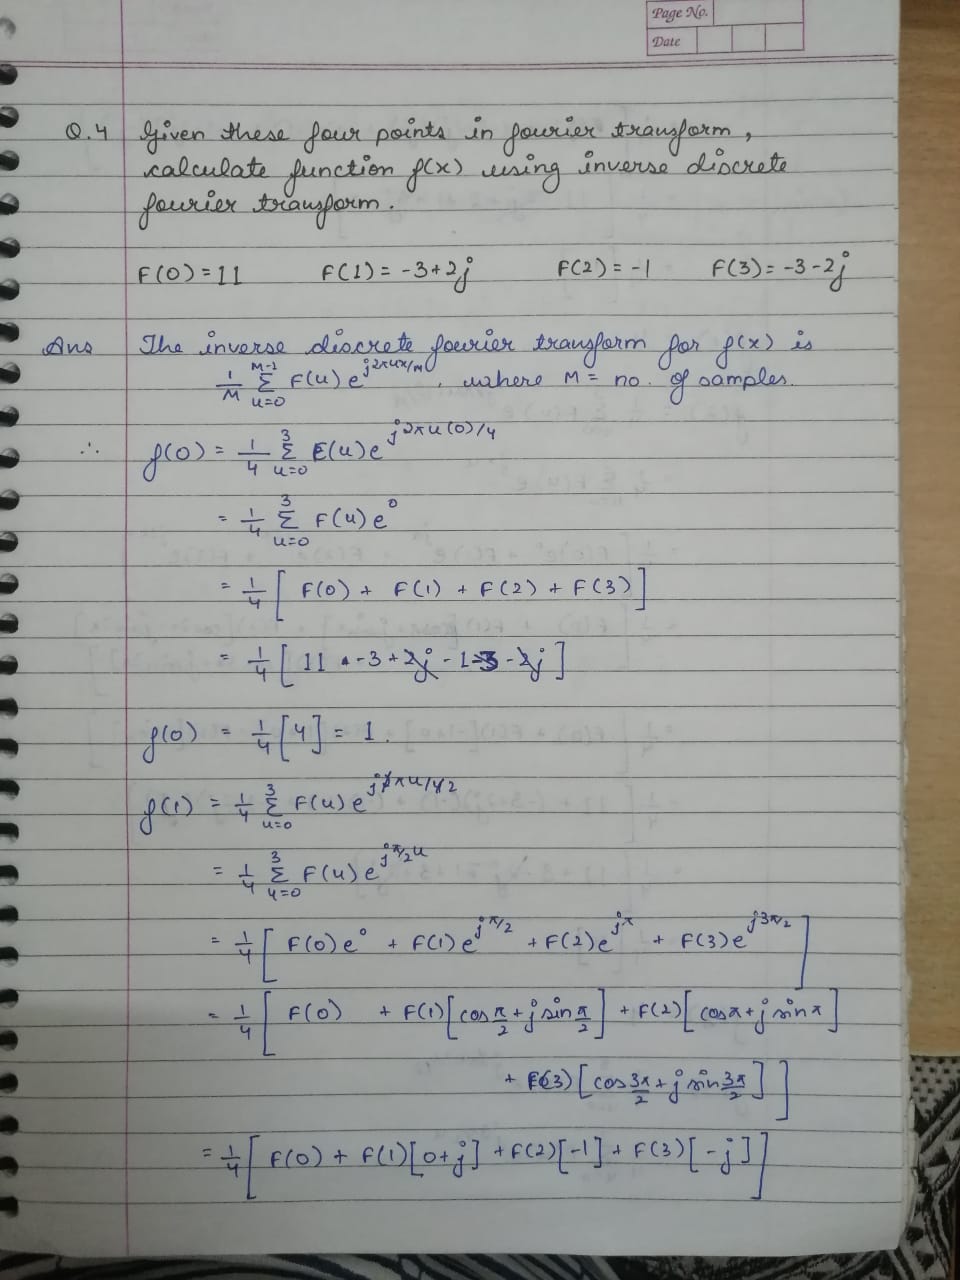 Page No.
Date
Q.4 Given these four points in fourier transform,
calculate function f(x) using inverse discrete
fourier transform.
F(0)=11 F(1)= -3+2j F(2)= -1 F(3)= -3-2j
Ans The inverse discrete fourier transform for f(x) is
1/M Σ_{u=0}^{M-1} F(u) e^{j2πux/M}, where M = no. of samples.
∴ f(0) = 1/4 Σ_{u=0}^{3} F(u) e^{j2πu(0)/4}
= 1/4 Σ_{u=0}^{3} F(u) e^0
= 1/4 [ F(0) + F(1) + F(2) + F(3) ]
= 1/4 [ 11 -3 + 2j - 1 -3 - 2j ]
f(0) = 1/4 [4] = 1.
f(1) = 1/4 Σ_{u=0}^{3} F(u) e^{j2πu/4 2}
= 1/4 Σ_{u=0}^{3} F(u) e^{jπ/2 u}
= 1/4 [ F(0) e^0 + F(1) e^{jπ/2} + F(2) e^{jπ} + F(3) e^{j3π/2} ]
= 1/4 [ F(0) + F(1) [cos π/2 + j sin π/2] + F(2) [cos π + j sin π]
+ F(3) [cos 3π/2 + j sin 3π/2] ]
= 1/4 [ F(0) + F(1)[0+j] + F(2)[-1] + F(3)[-j] ]